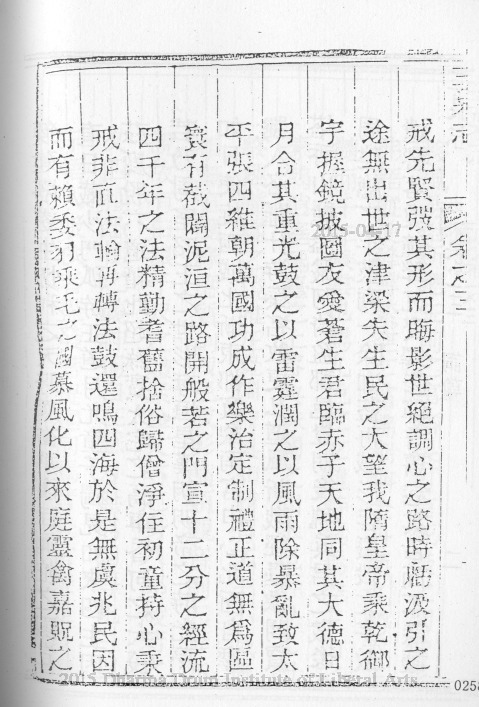 志 卷之三
戒先賢弢其形而晦影世絕調心之路時虧汲引之
途無出世之津梁失生民之大望我隋皇帝乘乾御
宇握鏡披圖友愛蒼生君臨赤子天地同其大德日
月合其重光鼓之以雷霆潤之以風雨除暴亂致太
平張四維朝萬國功成作樂治定制禮正道無爲區
寰有截闢泥洹之路開般若之門宣十二分之經流
四千年之法精勤耆舊捨俗歸僧淨住初童持心秉
戒非直法輪再轉法鼓還鳴四海於是無虞兆民因
而有賴委羽乘毛之國慕風化以來庭靈禽嘉貺之
2015 Dharma Drum Institute of Liberal Arts